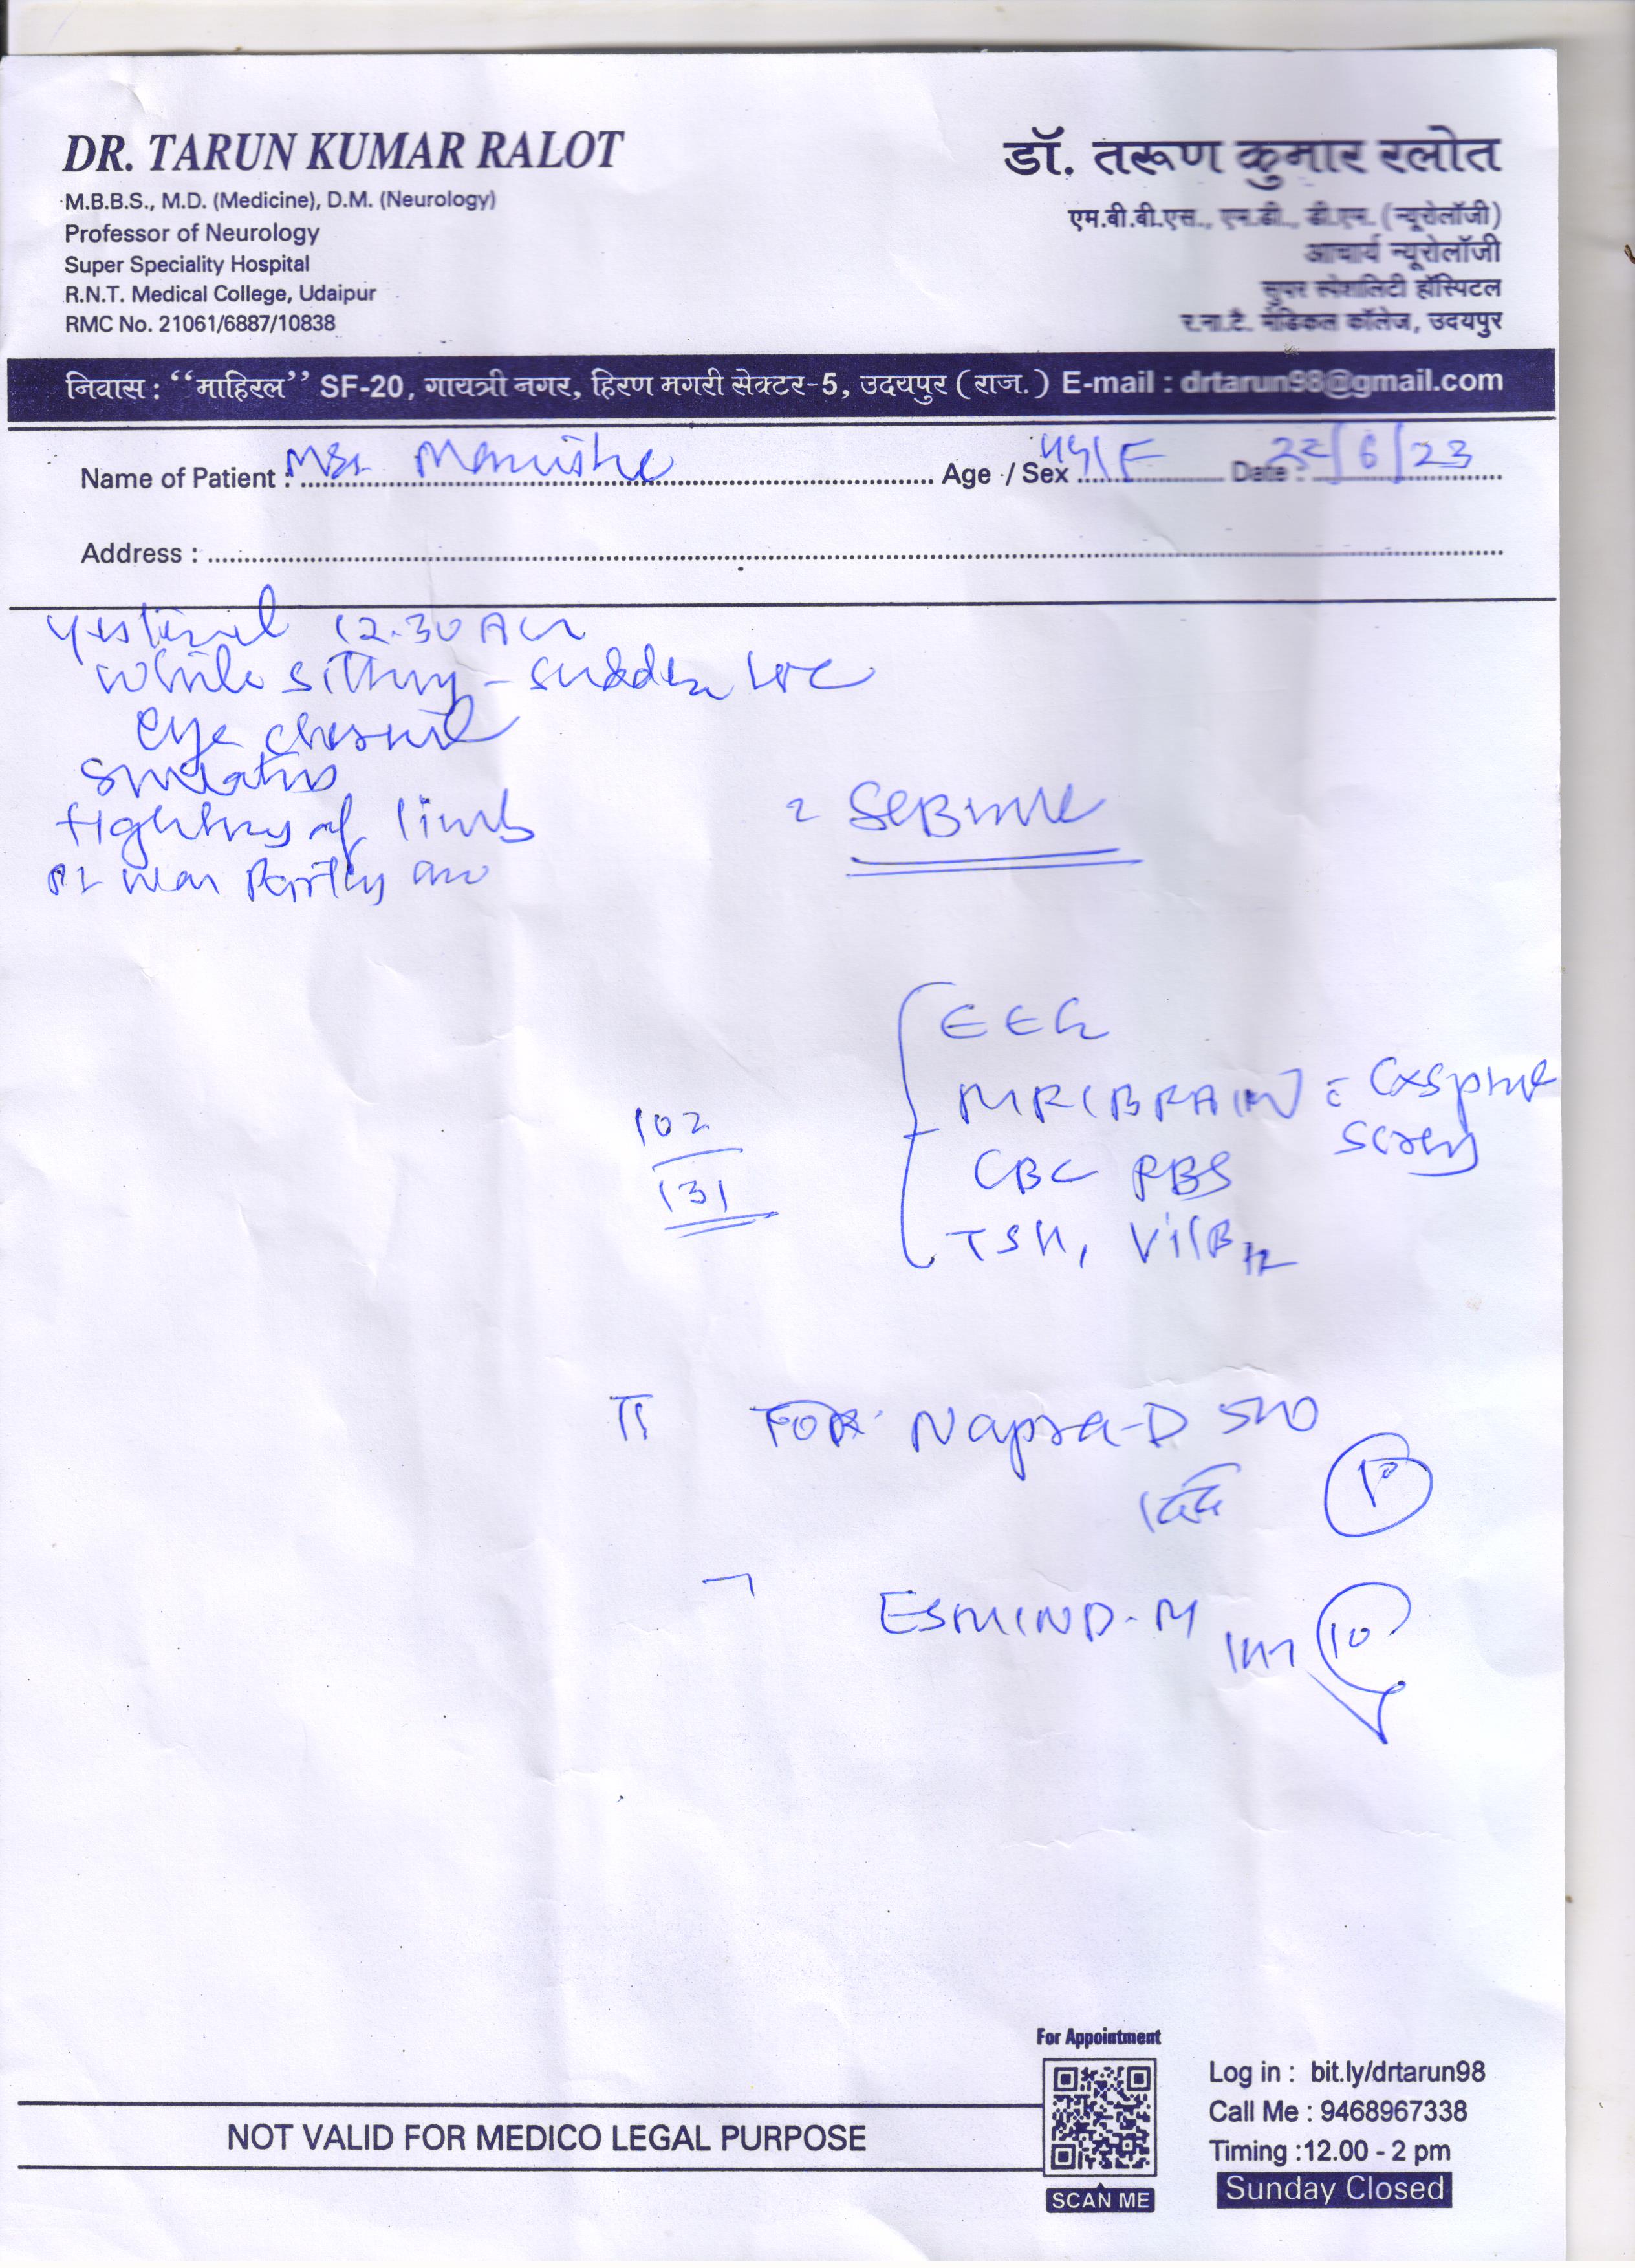 DR. TARUN KUMAR RALOT
M.B.B.S., M.D. (Medicine), D.M. (Neurology)
Professor of Neurology
Super Speciality Hospital
R.N.T. Medical College, Udaipur
RMC No. 21061/6887/10838
डॉ. तरूण कुमार रलोत
एम.बी.बी.एस., एम.डी., डी.एम. (न्यूरोलॉजी)
आचार्य न्यूरोलॉजी
सुपर स्पेशलिटी हॉस्पिटल
र.ना.टै. मेडिकल कॉलेज, उदयपुर
निवास : "माहिरल" SF-20, गायत्री नगर, हिरण मगरी सेक्टर-5, उदयपुर (राज.) E-mail : drtarun98@gmail.com
Name of Patient : Manisha Age / Sex F Date : 22/6/23
Address :
12.30 AM
while sitting - sudden LOC
eye
tightening of limb
EEG
MRI BRAIN Cx spine
screen
102
131
CBC RBS
TSH, Vit B12
Napra-D 500
10
ESMIND-M
10
For Appointment
SCAN ME
Log in : bit.ly/drtarun98
Call Me : 9468967338
Timing :12.00 - 2 pm
Sunday Closed
NOT VALID FOR MEDICO LEGAL PURPOSE